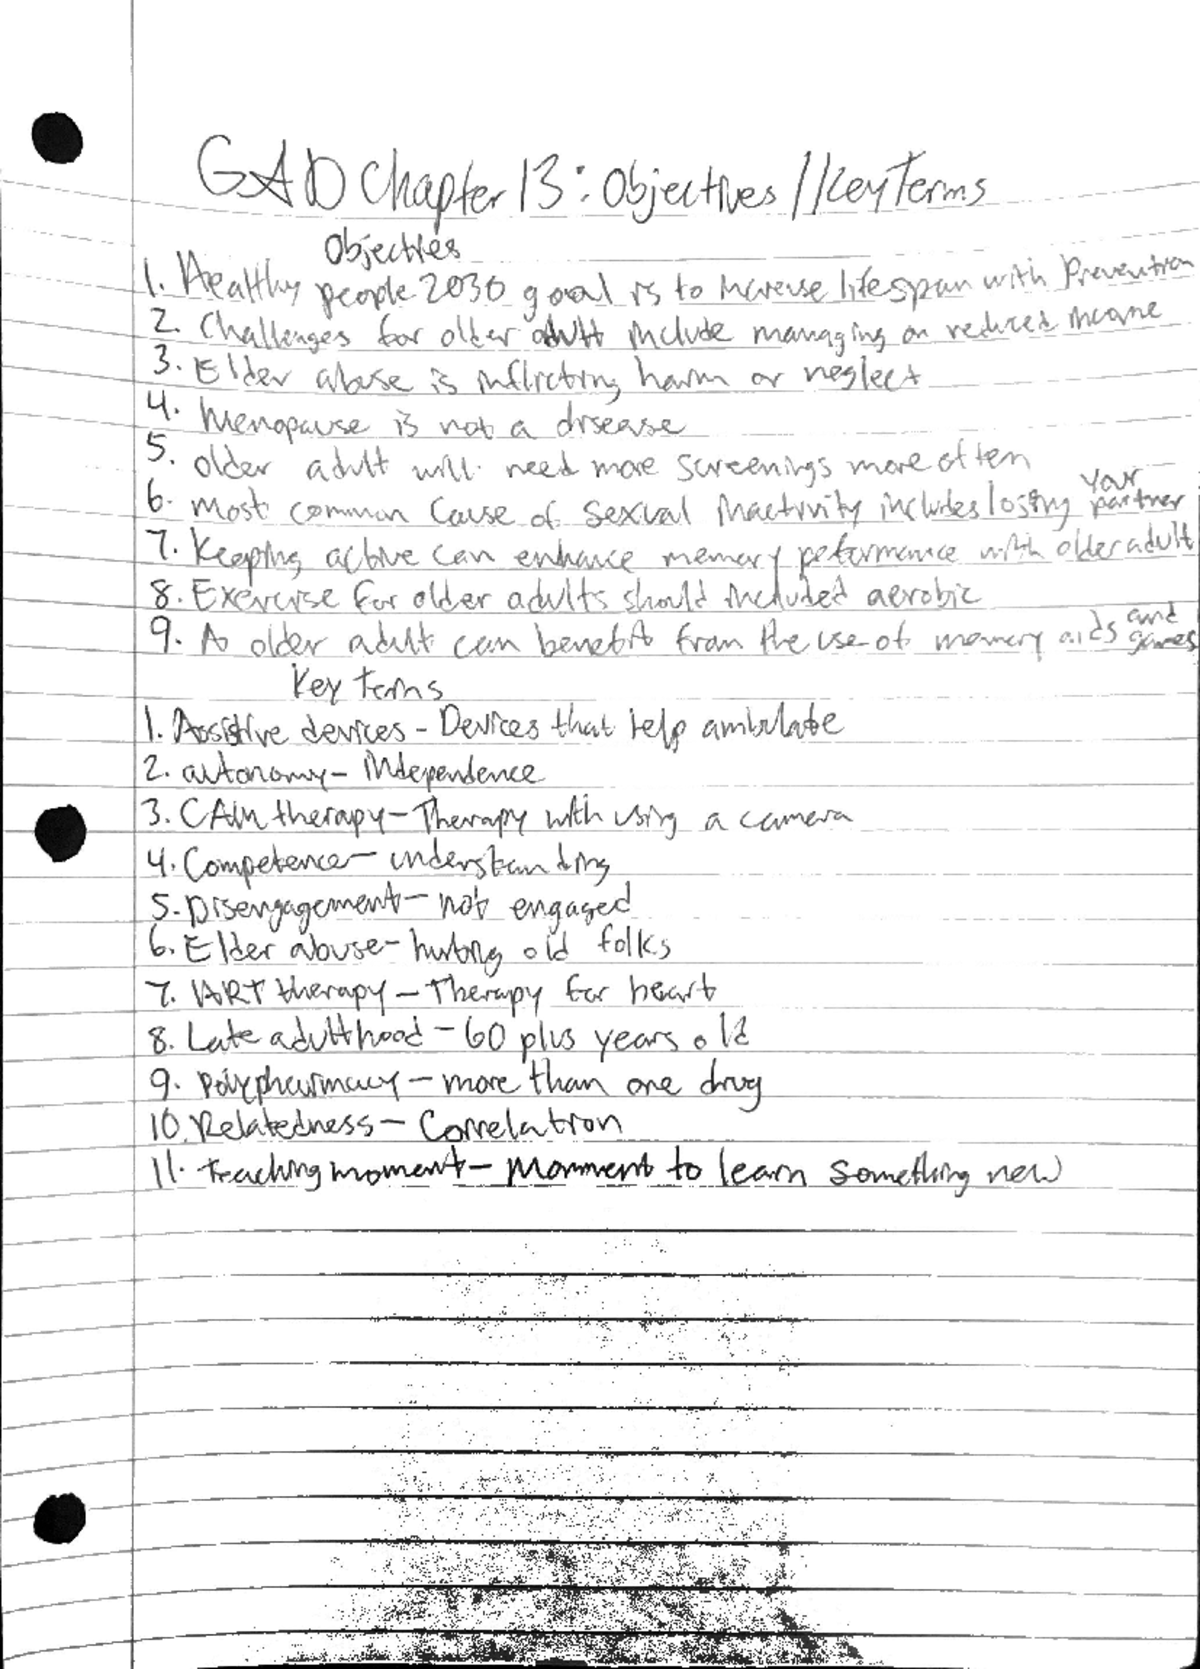 GAD Chapter 13: Objectives // Key Terms
Objectives
1. Healthy people 2030 goal is to increase lifespan with Prevention
2. Challenges for older adult include managing on reduced income
3. Elder abuse is inflicting harm or neglect
4. Menopause is not a disease
5. older adult will need more screenings more often
6. most common cause of sexual inactivity includes losing your partner
7. Keeping active can enhance memory peformance with older adult
8. Exercise for older adults should included aerobic
9. A older adult can benefit from the use of memory aids and games
Key terms
1. Assistive devices - Devices that help ambulate
2. autonomy - independence
3. CAM therapy - Therapy with using a camera
4. Competence - understanding
5. Disengagement - not engaged
6. Elder abuse - hurting old folks
7. HRT therapy - Therapy for heart
8. Late adulthood - 60 plus years old
9. Polypharmacy - more than one drug
10. Relatedness - Correlation
11. Teaching moment - Momment to learn something new